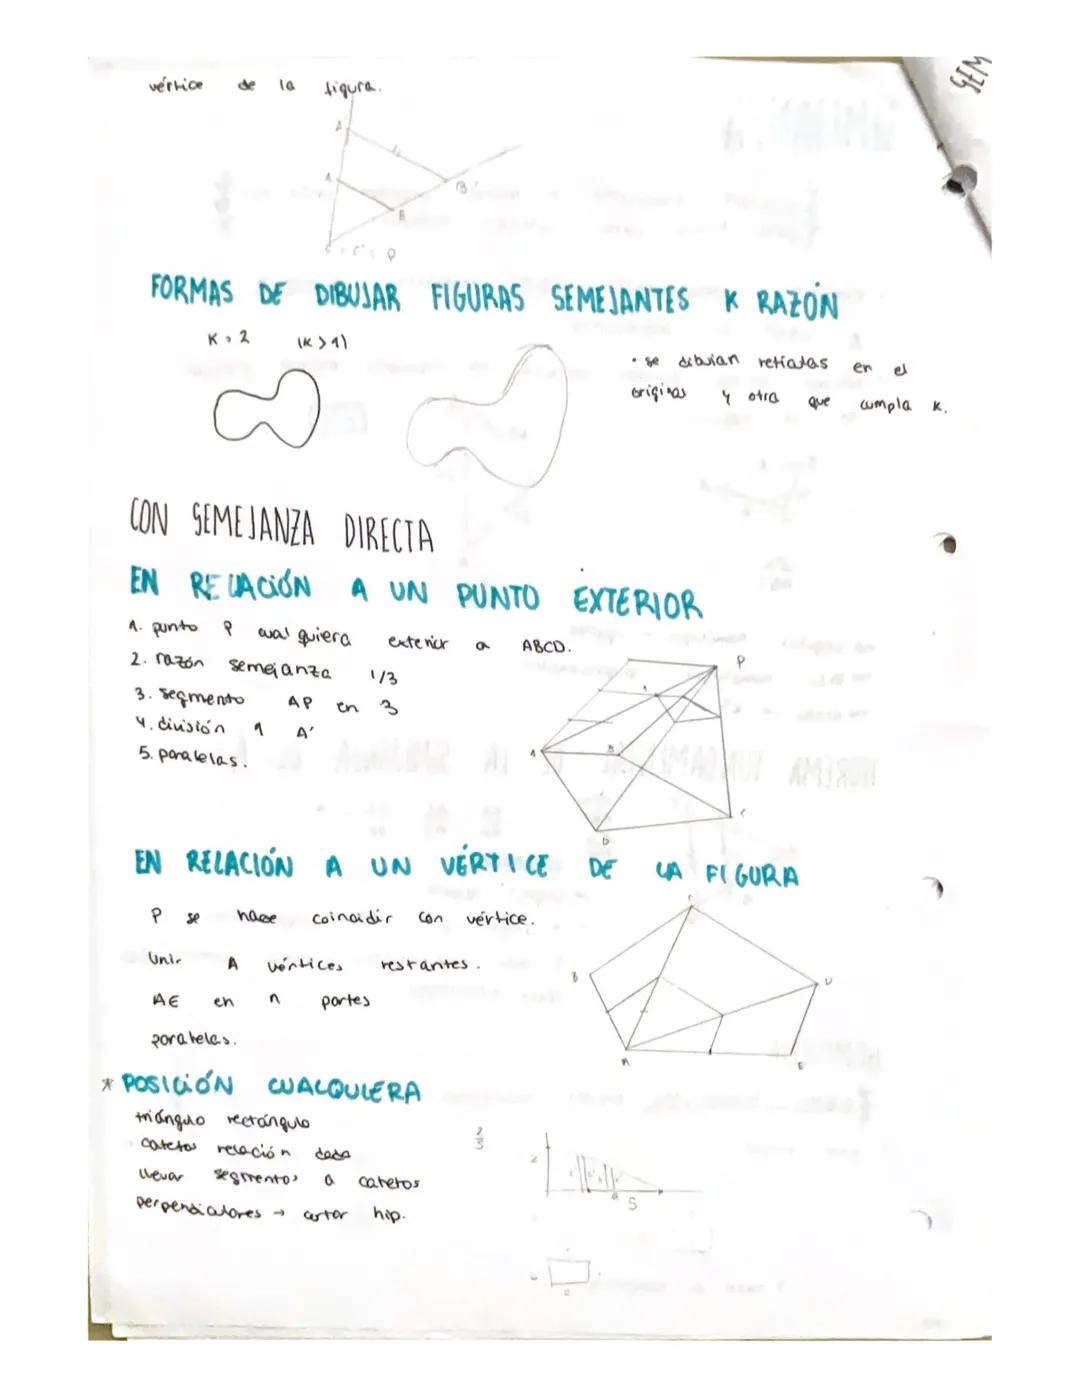 vértice de la figura.
A'
A
B'
B
C = C' = P
FORMAS DE DIBUJAR FIGURAS SEMEJANTES K RAZÓN
K = 2 (K > 1)
• se dibujan retículas en el
originas y otra que cumpla K.
CON SEMEJANZA DIRECTA
EN RELACIÓN A UN PUNTO EXTERIOR
1. punto P cualquiera exterior a ABCD.
2. razón semejanza 1/3
3. segmento AP en 3
4. división 1 A'
5. paralelas.
P
A
B
C
D
EN RELACIÓN A UN VÉRTICE DE LA FIGURA
P se hace coincidir con vértice.
Unir A vértices restantes.
AE en n partes
paralelas.
C
B
D
A
E
* POSICIÓN CUALQUIERA
triángulo rectángulo
catetos relación dada
llevar segmentos a catetos
perpendiculares → cortar hip.
2/5
2
a
5
SEM